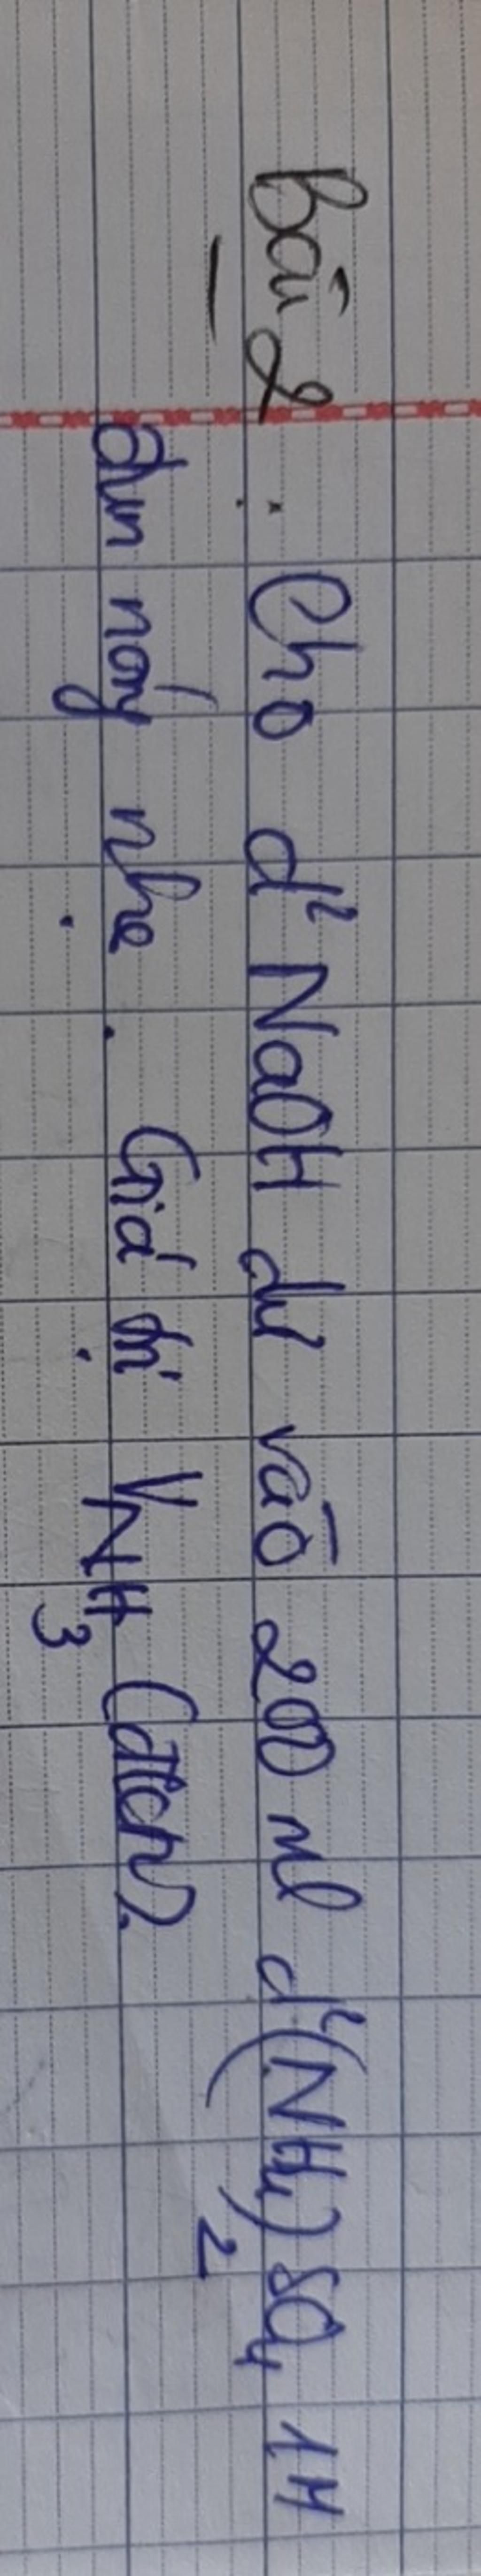 Bài 2 : Cho d² NaOH dư vào 200 ml d² (NH₄)₂SO₄ 1M
đun nóng nhẹ . Giá trị V NH₃ (đktc).